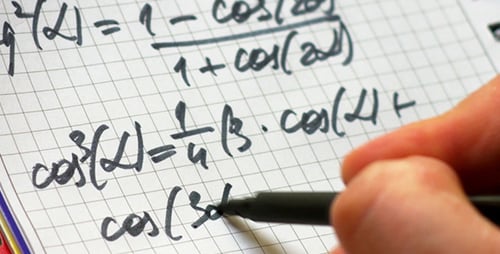 g²(α) = 1 - cos(2α) / 1 + cos(2α)
cos³(α) = 1/4 (3 · cos(α) +
cos(3α